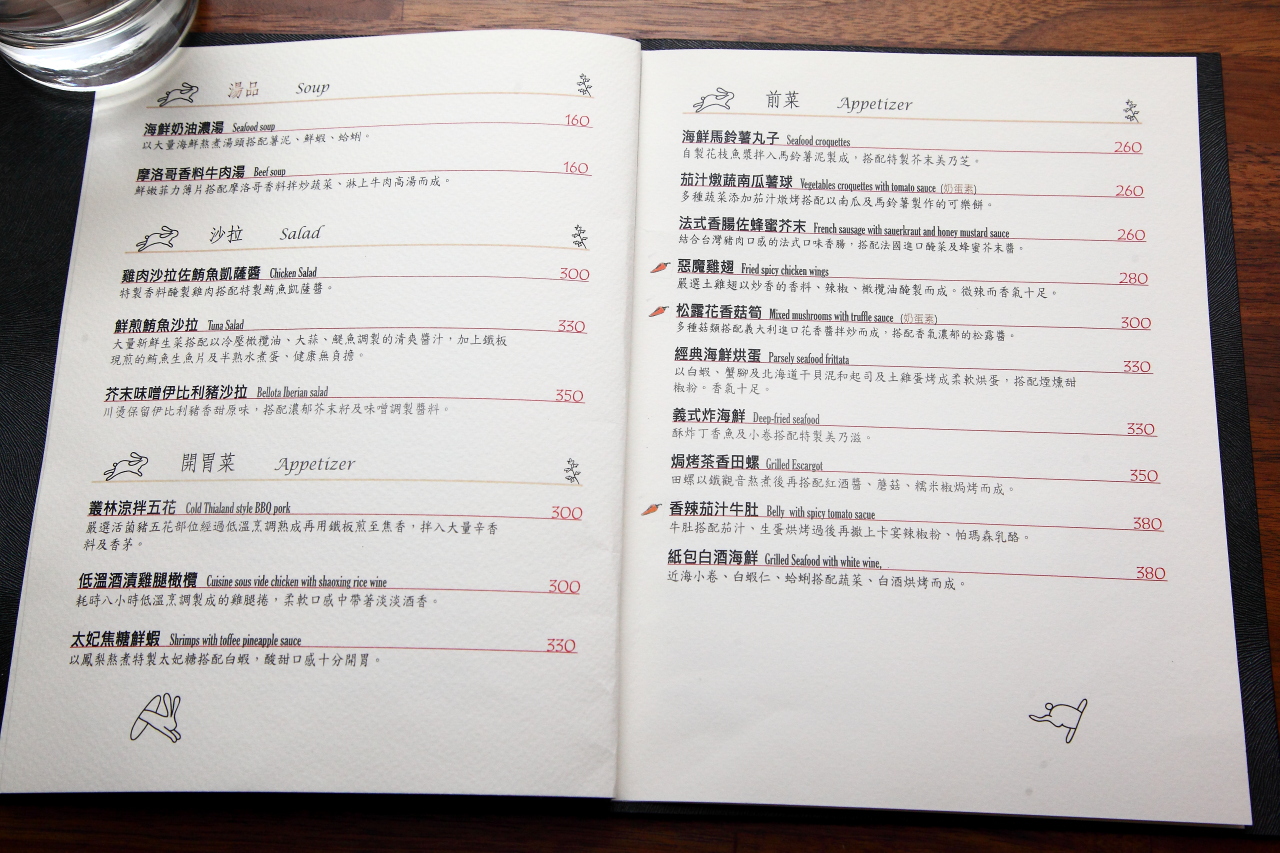 湯品 Soup
海鮮奶油濃湯 Seafood soup 160
以大量海鮮熬煮湯頭搭配薯泥、鮮蝦、蛤蜊。
摩洛哥香料牛肉湯 Beef soup 160
鮮嫩菲力薄片搭配摩洛哥香料拌炒蔬菜、淋上牛肉高湯而成。
沙拉 Salad
雞肉沙拉佐鮪魚凱薩醬 Chicken Salad 300
特製香料醃製雞肉搭配特製鮪魚凱薩醬。
鮮煎鮪魚沙拉 Tuna Salad 330
大量新鮮生菜搭配以冷壓橄欖油、大蒜、鯷魚調製的清爽醬汁，加上鐵板
現煎的鮪魚生魚片及半熟水煮蛋、健康無負擔。
芥末味噌伊比利豬沙拉 Bellota Iberian salad 350
川燙保留伊比利豬香甜原味，搭配濃郁芥末籽及味噌調製醬料。
開胃菜 Appetizer
叢林涼拌五花 Cold Thialand style BBQ pork 300
嚴選活菌豬五花部位經過低溫烹調熟成再用鐵板煎至焦香，拌入大量辛香
料及香茅。
低溫酒漬雞腿橄欖 Cuisine sous vide chicken with shaoxing rice wine 300
耗時八小時低溫烹調製成的雞腿捲，柔軟口感中帶著淡淡酒香。
太妃焦糖鮮蝦 Shrimps with toffee pineapple sauce 330
以鳳梨熬煮特製太妃糖搭配白蝦，酸甜口感十分開胃。
前菜 Appetizer
海鮮馬鈴薯丸子 Seafood croquettes 260
自製花枝魚漿拌入馬鈴薯泥製成，搭配特製芥末美乃芝。
茄汁燉蔬南瓜薯球 Vegetables croquettes with tomato sauce (奶蛋素) 260
多種蔬菜添加茄汁燉烤搭配以南瓜及馬鈴薯製作的可樂餅。
法式香腸佐蜂蜜芥末 French sausage with sauerkraut and honey mustard sauce 260
結合台灣豬肉口感的法式口味香腸，搭配法國進口醃菜及蜂蜜芥末醬。
惡魔雞翅 Fried spicy chicken wings 280
嚴選土雞翅以炒香的香料、辣椒、橄欖油醃製而成。微辣而香氣十足。
松露花香菇筍 Mixed mushrooms with truffle sauce (奶蛋素) 300
多種菇類搭配義大利進口花香醬拌炒而成，搭配香氣濃郁的松露醬。
經典海鮮烘蛋 Parsely seafood frittata 330
以白蝦、蟹腳及北海道干貝混和起司及土雞蛋烤成柔軟烘蛋，搭配煙燻甜
椒粉。香氣十足。
義式炸海鮮 Deep-fried seafood 330
酥炸丁香魚及小卷搭配特製美乃滋。
焗烤茶香田螺 Grilled Escargot 350
田螺以鐵觀音熬煮後再搭配紅酒醬、蘑菇、糯米椒焗烤而成。
香辣茄汁牛肚 Belly with spicy tomato sacue 380
牛肚搭配茄汁、生蛋烘烤過後再撒上卡宴辣椒粉、帕瑪森乳酪。
紙包白酒海鮮 Grilled Seafood with white wine, 380
近海小卷、白蝦仁、蛤蜊搭配蔬菜、白酒烘烤而成。